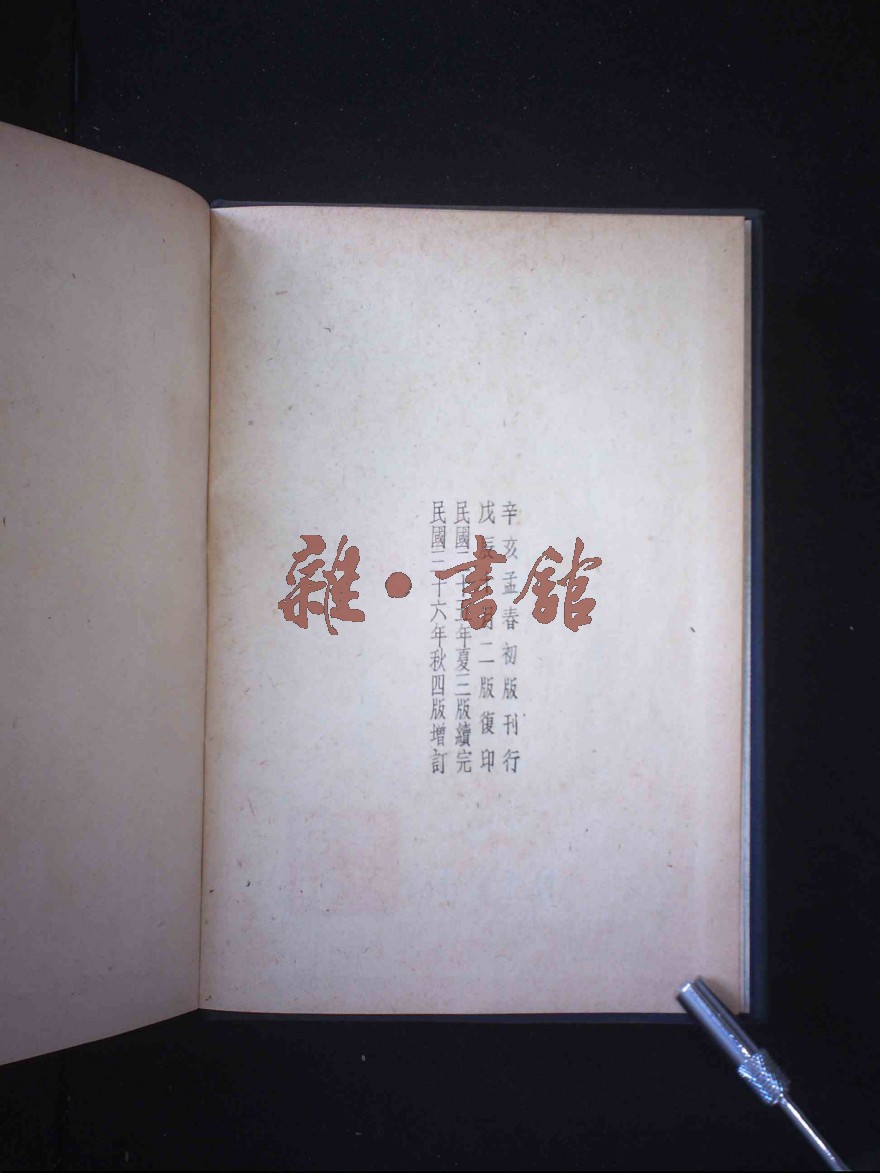 辛亥孟春初版刊行
戊辰 二版復印
民國二十五年夏三版續完
民國二十六年秋四版增訂
雜·書館